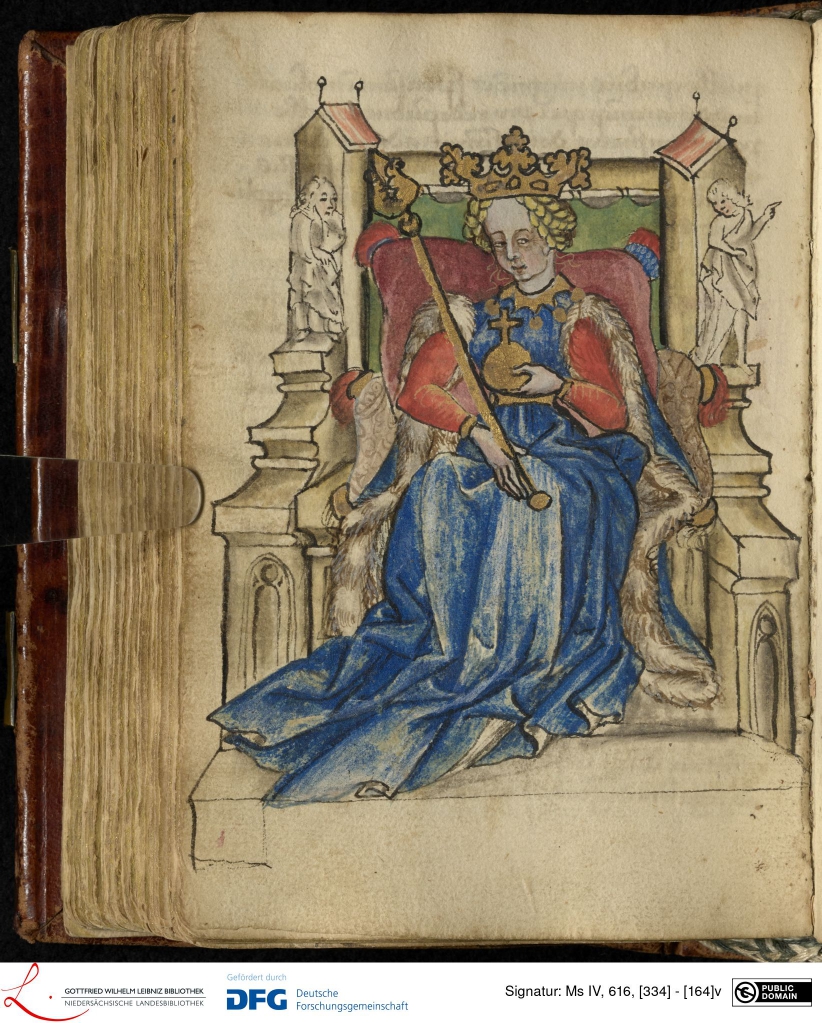 GOTTFRIED WILHELM LEIBNIZ BIBLIOTHEK
NIEDERSÄCHSISCHE LANDESBIBLIOTHEK
Gefördert durch
DFG Deutsche
Forschungsgemeinschaft
Signatur: Ms IV, 616, [334] - [164]v
PUBLIC
DOMAIN